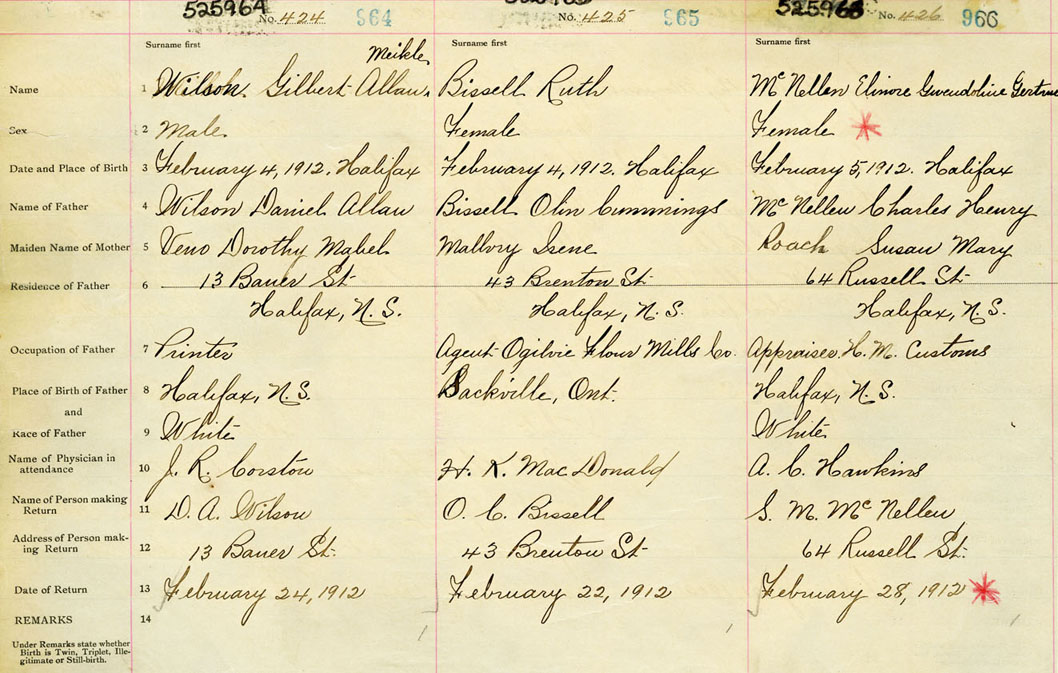 525964 No. 424 964 No. 425 965 525966 No. 426 966
Surname first Surname first Surname first
Meikle
Name 1 Wilson. Gilbert Allan. Bissell Ruth McNellen Elinore Gwendoline Gertru
Sex 2 Male. Female Female
Date and Place of Birth 3 February 4, 1912. Halifax February 4, 1912. Halifax February 5, 1912. Halifax
Name of Father 4 Wilson Daniel Allan Bissell Olin Cummings McNellen Charles Henry
Maiden Name of Mother 5 Veno Dorothy Mabel Mallory Irene Roach Susan Mary
Residence of Father 6 13 Bauer St 43 Brenton St 64 Russell St
Halifax, N.S. Halifax, N.S. Halifax, N.S.
Occupation of Father 7 Printer Agent Ogilvie Flour Mills Co. Appraiser H.M. Customs
Place of Birth of Father 8 Halifax, N.S. Sackville, Ont. Halifax, N.S.
and
Race of Father 9 White White
Name of Physician in
attendance 10 J. R. Corston H. K. MacDonald A. C. Hawkins
Name of Person making
Return 11 D. A. Wilson O. C. Bissell S. M. McNellen
Address of Person mak-
ing Return 12 13 Bauer St. 43 Brenton St 64 Russell St.
Date of Return 13 February 24, 1912 February 22, 1912 February 28, 1912
REMARKS 14
Under Remarks state whether
Birth is Twin, Triplet, Ille-
gitimate or Still-birth.